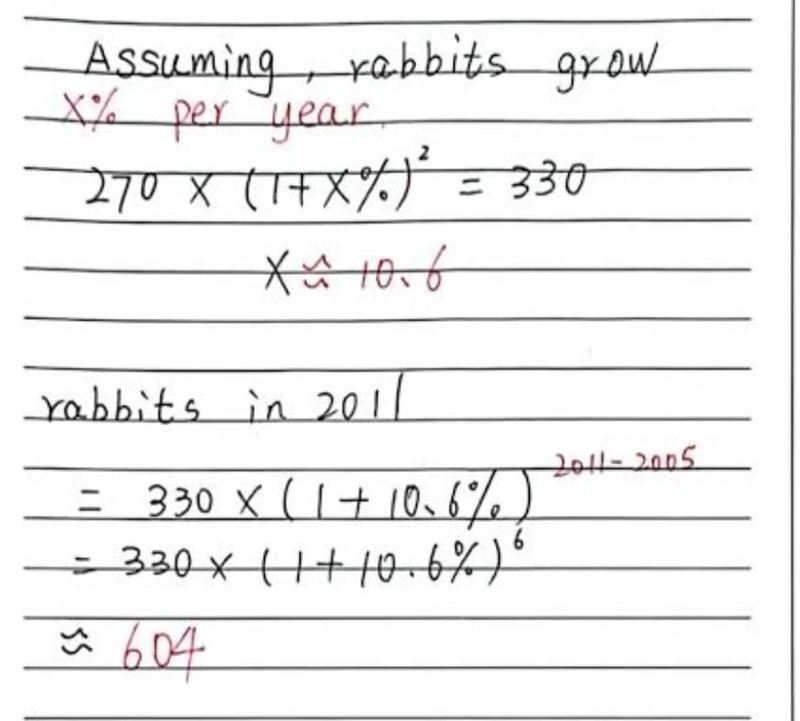 Assuming, rabbits grow
X% per year.
270 × (1+X%)² = 330
X ≈ 10.6
rabbits in 2011
= 330 × (1+10.6%)²⁰¹¹⁻²⁰⁰⁵
= 330 × (1+10.6%)⁶
≈ 604